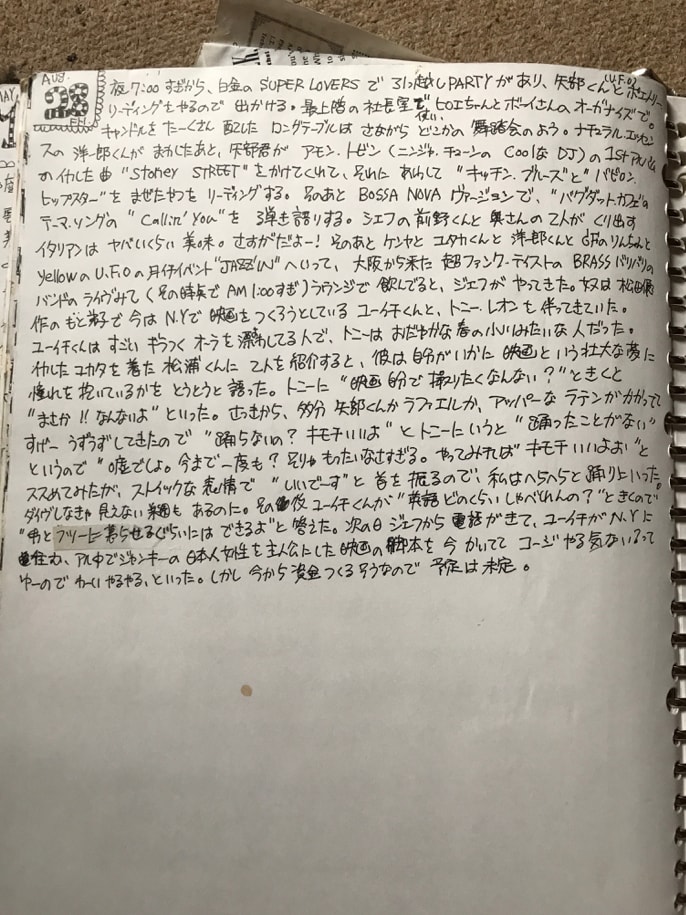 AUG.
28
夜7:00すぎから、白金のSUPER LOVERSで引っ越しPARTYがあり、矢部くん(U.F.O)とポエトリー
リーディングをやるので出かける。最上階の社長室で使い、ヒロエちゃんとボーイさんのオーガナイズで。
キャンドルをたーくさん配したロングテーブルはさながらどこかの舞踏会のよう。ナチュラルエッセン
スの洋一郎くんがまわしたあと、矢部君がアモン・トビン(ニンジャ・チューンのCoolなDJ)の1stアルバム
のイカした曲"Stoney STREET"をかけてくれて、それにあわして"キッチン・ブルーズ"と"バビロン・
ヒップスター"をまぜたやつをリーディングする。そのあとBOSSA NOVAヴァージョンで、"バグダットカフェ"の
テーマ・ソングの"Callin' You"を弾き語りする。シェフの前野くんと奥さんの2人がくり出す
イタリアンはヤバいくらい美味。さすがだよー!そのあとケンヤとユタカくんと洋一郎くんとGFのりんちゃんと
YellowのU.F.Oの月イチイベント"JAZZ'IN"へいって、大阪から来た超ファンク・テイストのBRASSバリバリの
バンドのライヴみて(その時点でAM1:00すぎ)ラウンジで飲んでると、ジェフがやってきた。奴は松田優
作のもと弟子で今はN.Yで映画をつくろうとしているユーイチくんと、トニー・レオンを伴ってきていた。
ユーイチくんはすごいギラつくオーラを漂わしてる人で、トニーはおだやかな春の小川みたいな人だった。
イカしたユカタを着た松浦くんに2人を紹介すると、彼は自分がいかに映画という壮大な夢に
憧れを抱いているかをとうとうと語った。トニーに"映画自分で撮りたくなんない?"ときくと
"まさか!!なんないよ"といった。さっきから、多分矢部くんかラファエルか、アッパーなラテンがかかってて
すげーうずうずしてきたので"踊らないの?キモチいいよ"とトニーにいうと"踊ったことがない"
というので"0度でしょ。今まで一度も?そりゃもったいなさすぎる。やってみれば"キモチいいよお"と
ススめてみたが、ストイックな表情で"いいでーす"と首を振るので、私はへらへらと踊りにいった。
ダイヴしなきゃ見えない楽園もあるのた。その後ユーイチくんが"英語どのくらいしゃべれんの?"ときくので
"男とフツーに暮らせるぐらいにはできるよ"と答えた。次の日ジェフから電話がきて、ユーイチがN.Yに
住む、アル中でジャンキーの日本人女性を主人公にした映画の脚本を今かいててコージやる気ないぅって
ゆーのでわーいやるやる、といった。しかし今から資金つくるそうなので予定は未定。